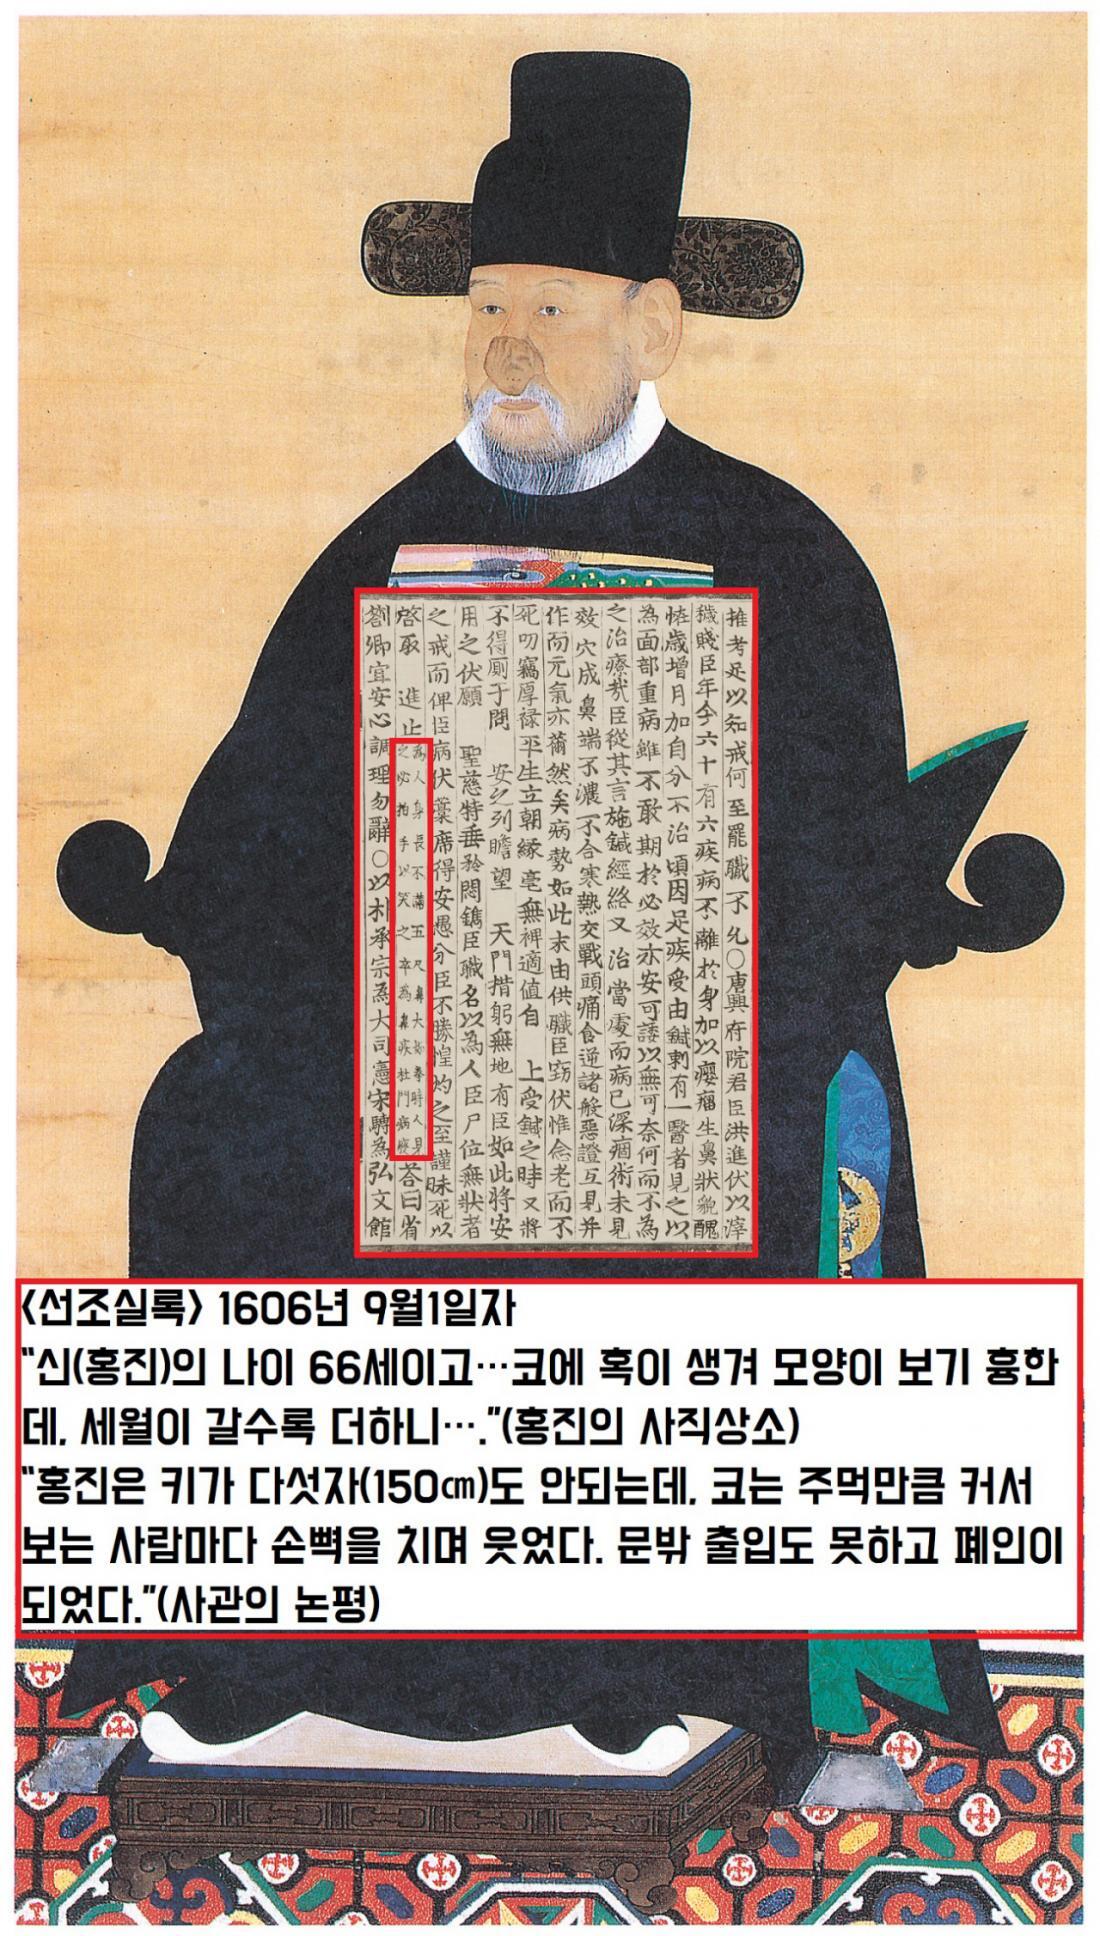 推考足以知戒何至罷職不允○唐興府院君臣洪進伏以滓
穢賤臣年今六十有六疾病不離於身加以癭瘤生鼻狀貌醜
恠歲增月加自分不治頃因足疾受由鍼刺有一醫者見之以
為面部重病雖不敢期於必效亦安可諉以無可奈何而不為
之治療哉臣從其言施鍼經絡又治當處而病已深痼術未見
效穴成鼻端不濃不合寒熱交戰頭痛食逆諸般惡證互見并
作而元氣亦薾然矣病勢如此末由供職臣窃伏惟念老而不
死叨竊厚祿平生立朝緣毫無裨適值自 上受鍼之時又將
不得厠于問 安之列瞻望 天門措躬無地有臣如此將安
用之伏願 聖慈特垂矜悶鐫臣職名以為人臣尸位無狀者
之戒而俾臣病伏藁席得安愚分臣不勝惶灼之至謹昧死以
啓取 進止為人身長不滿五尺鼻大如拳時人見
之必拍手以笑之卒為鼻疾杜門病廢答曰省
劄卿宜安心調理勿辭○以朴承宗為大司憲宋騁為弘文館
<선조실록> 1606년 9월1일자
"신(홍진)의 나이 66세이고…코에 혹이 생겨 모양이 보기 흉한
데, 세월이 갈수록 더하니…."(홍진의 사직상소)
"홍진은 키가 다섯자(150㎝)도 안되는데, 코는 주먹만큼 커서
보는 사람마다 손뼉을 치며 웃었다. 문밖 출입도 못하고 폐인이
되었다."(사관의 논평)